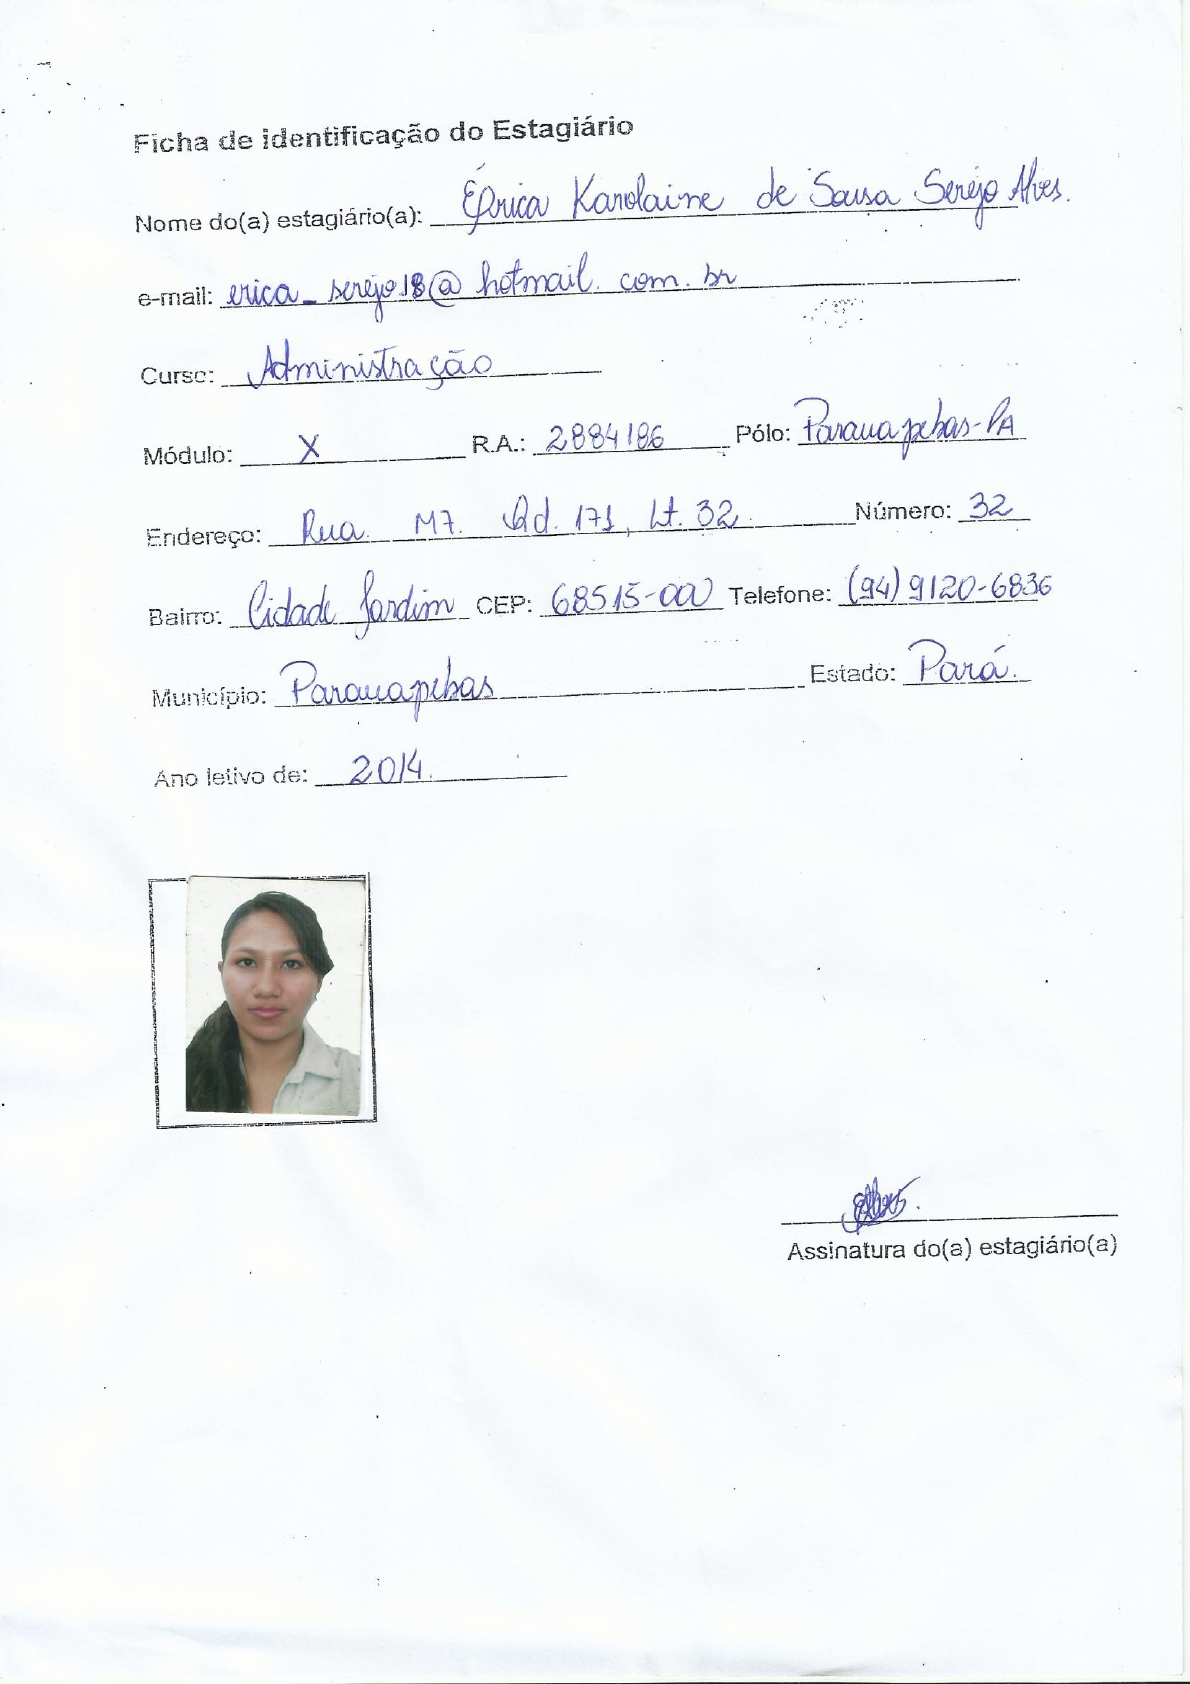 Ficha de identificação do Estagiário
Nome do(a) estagiário(a): Érica Karolaine de Sousa Serejo Alves.
e-mail: erica_serejo18@hotmail.com.br
Curso: Administração
Módulo: X R.A.: 2884186 Pólo: Parauapebas-PA
Endereço: Rua M7. Qd. 171, Lt. 32. Número: 32
Bairro: Cidade Jardim CEP: 68515-000 Telefone: (94) 9120-6836
Município: Parauapebas Estado: Pará.
Ano letivo de: 2014.
Assinatura do(a) estagiário(a)